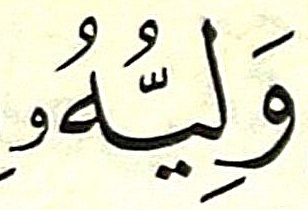 وَلِيُّهُۥ